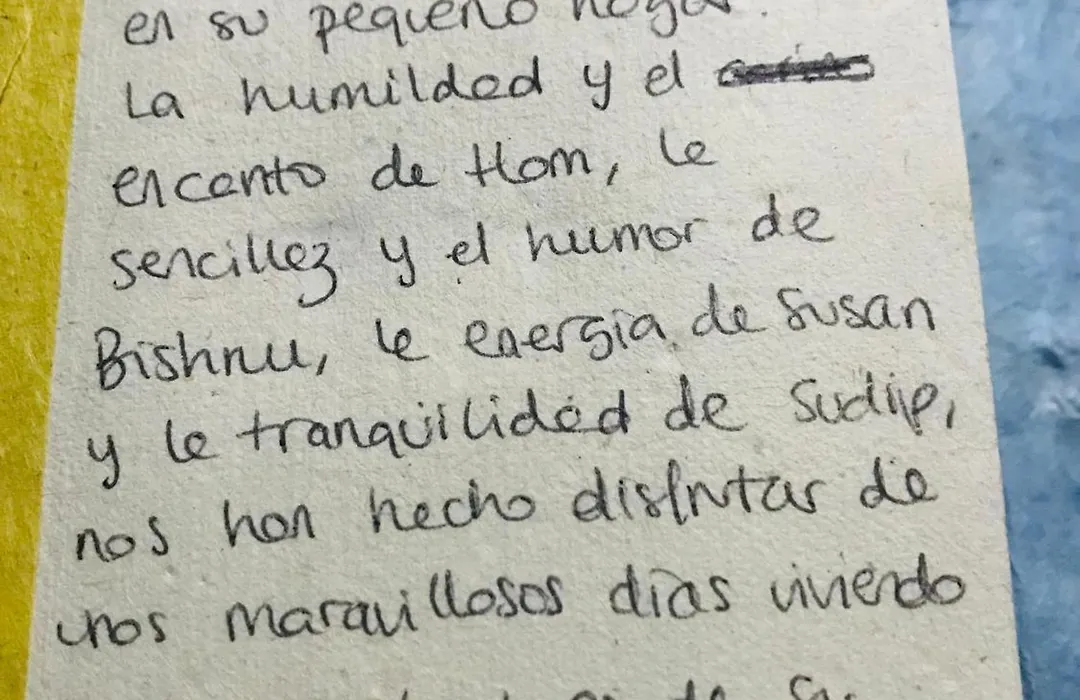 en su pequeño hogar.
La humildad y el
encanto de Hom, la
sencillez y el humor de
Bishnu, la energía de Susan
y la tranquilidad de Sudip,
nos han hecho disfrutar de
unos maravillosos días viviendo